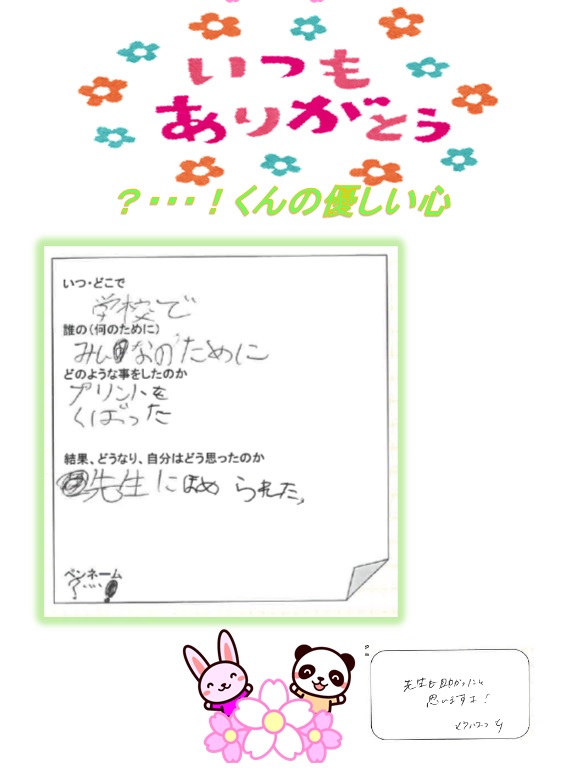 いつも
ありがとう
?・・・!くんの優しい心
いつ・どこで
学校で
誰の(何のために)
みんなのために
どのような事をしたのか
プリントを
くばった
結果、どうなり、自分はどう思ったのか
先生にほめられた。
ペンネーム
?…!
先生も助かったと
思いますよ!